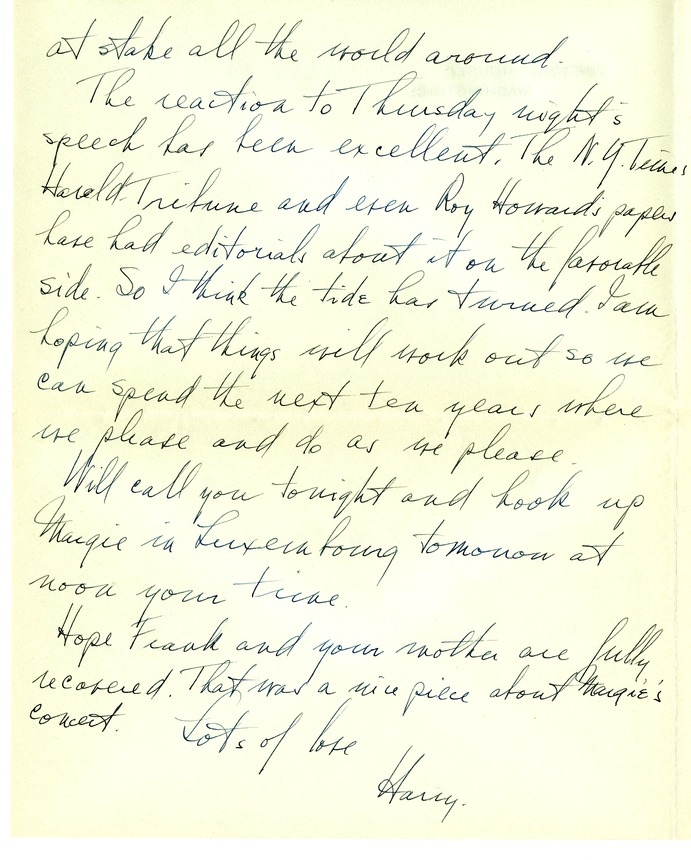 at stake all the world around.
The reaction to Thursday night's
speech has been excellent. The N.Y. Times
Herald-Tribune and even Roy Howard's papers
have had editorials about it on the favorable
side. So I think the tide has turned. I am
hoping that things will work out so we
can spend the next ten years where
we please and do as we please.
Will call you tonight and hook up
Margie in Luxembourg tomorrow at
noon your time.
Hope Frank and your mother are fully
recovered. That was a nice piece about Margie's
concert.
Lots of love
Harry.